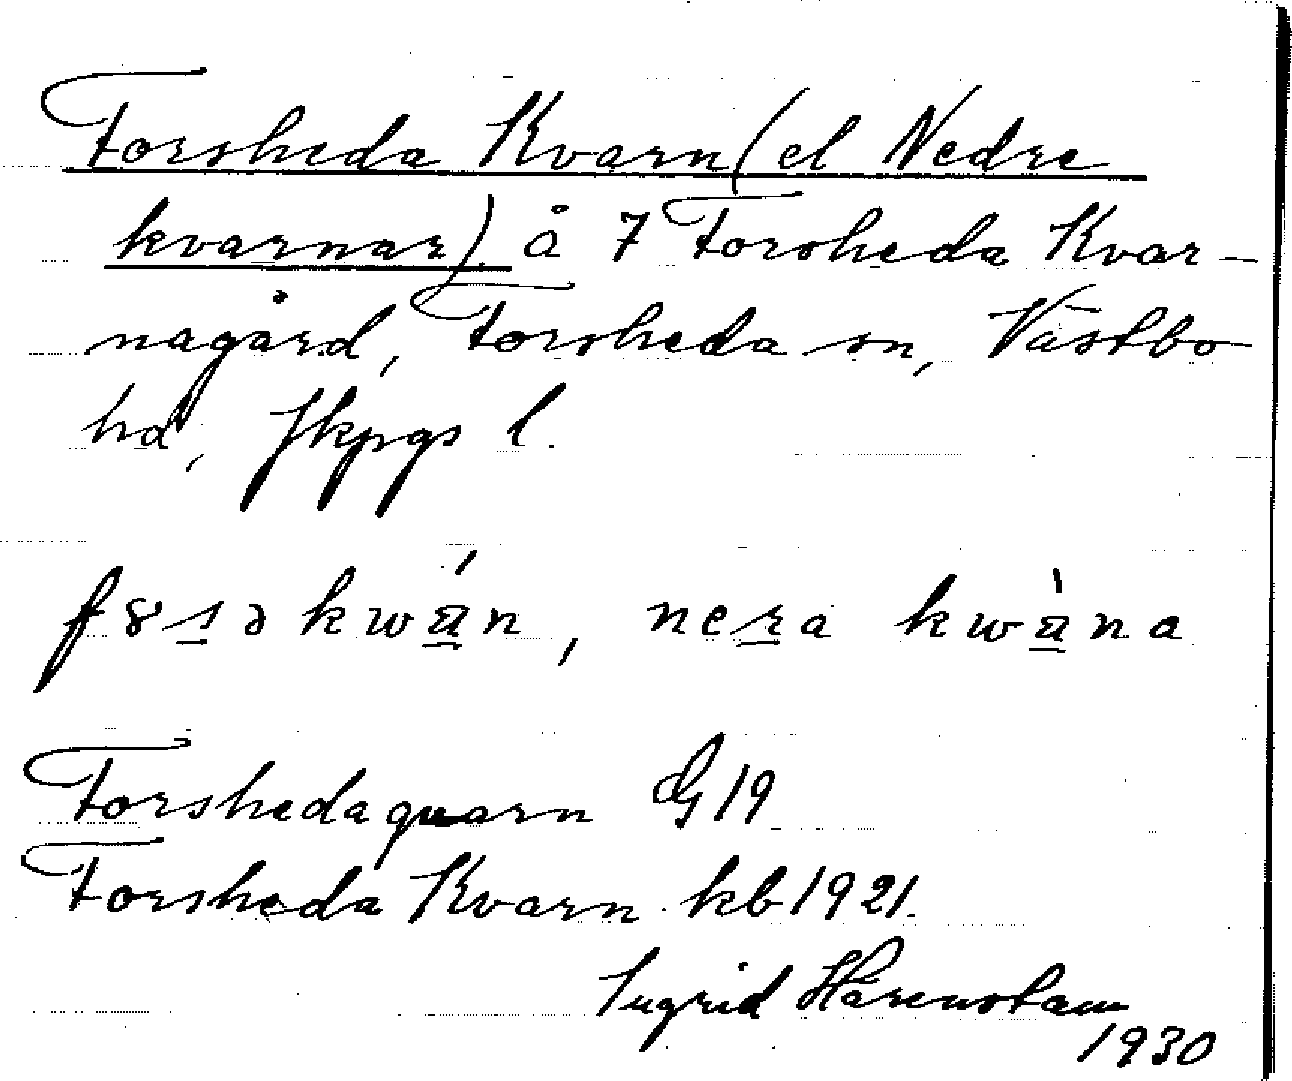 Forsheda Kvarn (el Nedre
kvarnar) å 7 Forsheda Kvar-
nagård, Forsheda sn, Västbo
hd, Jkpgs l.
fɤsə kwán, nera kwàna
Forshedaquarn G 19
Forsheda Kvarn kb 1921.
Ingrid Härenstam
1930